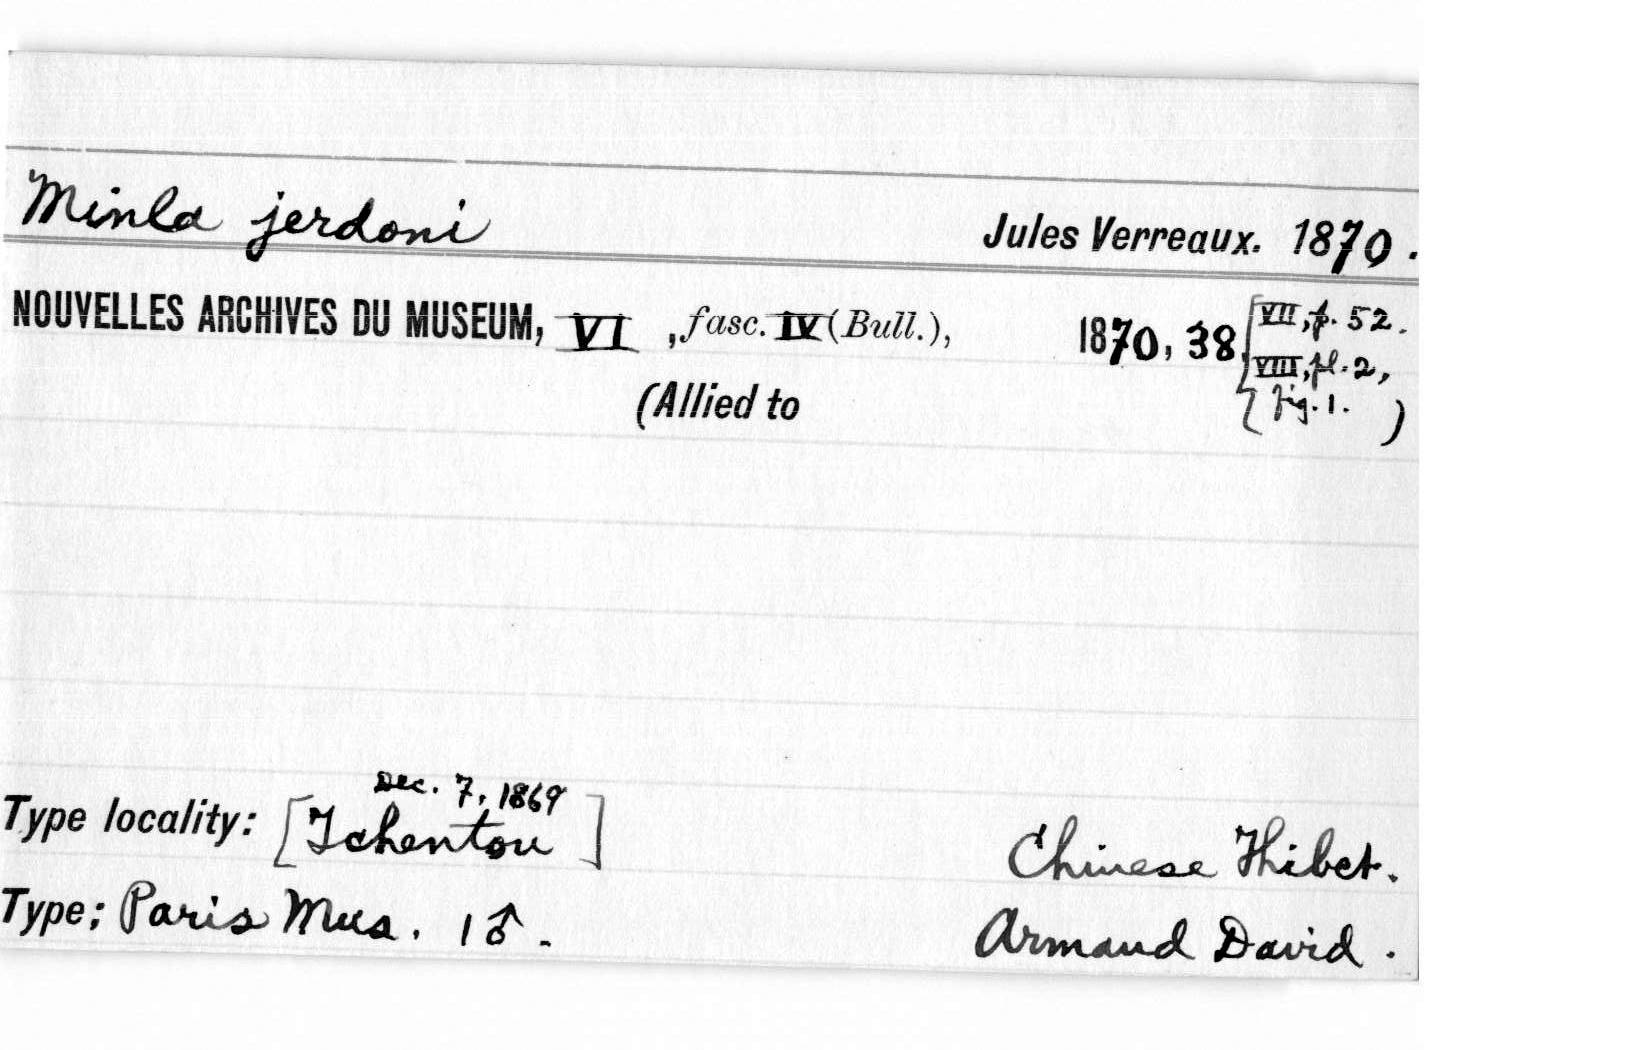 Minla jerdoni Jules Verreaux. 1870.
NOUVELLES ARCHIVES DU MUSEUM, VI, fasc. IV (Bull.), 1870, 38, [VII, p. 52.
VIII, pl. 2,
(Allied to [fig. 1. )
Dec. 7, 1869
Type locality: [Tchentou] Chinese Thibet.
Type: Paris Mus. 1♂. Armand David.